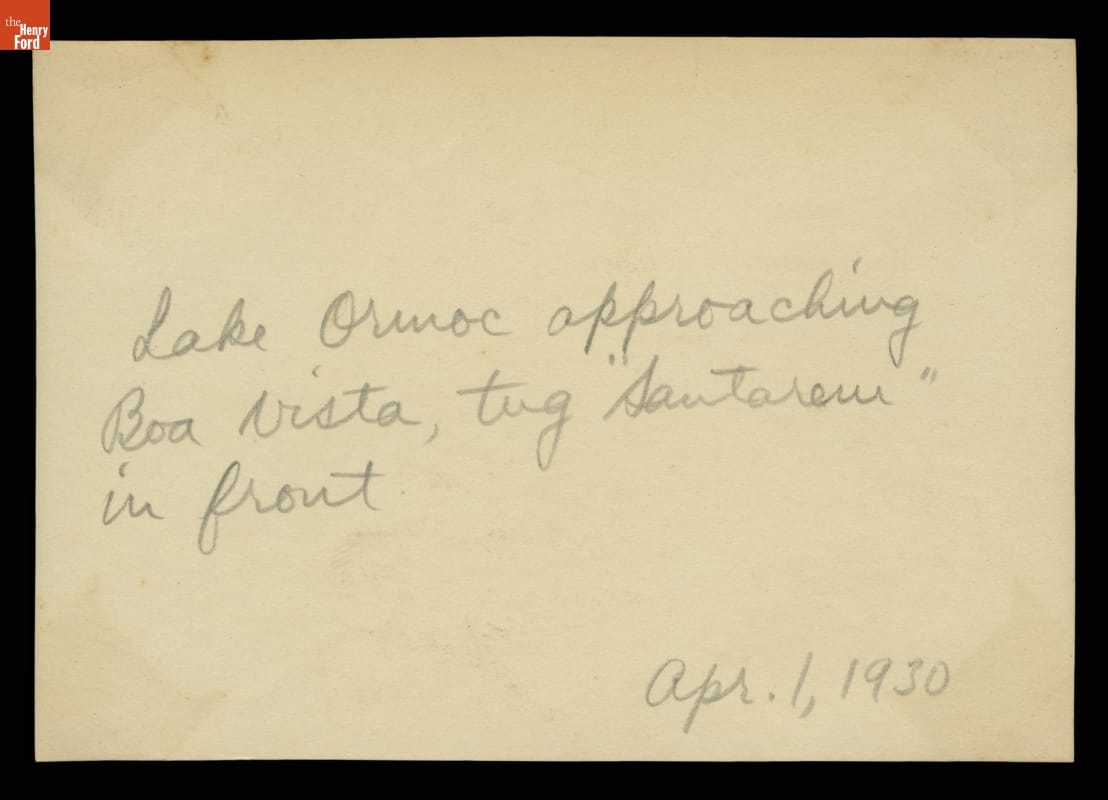 the
Henry
Ford
Lake Ormoc approaching
Boa Vista, tug "Santarem"
in front
Apr. 1, 1930